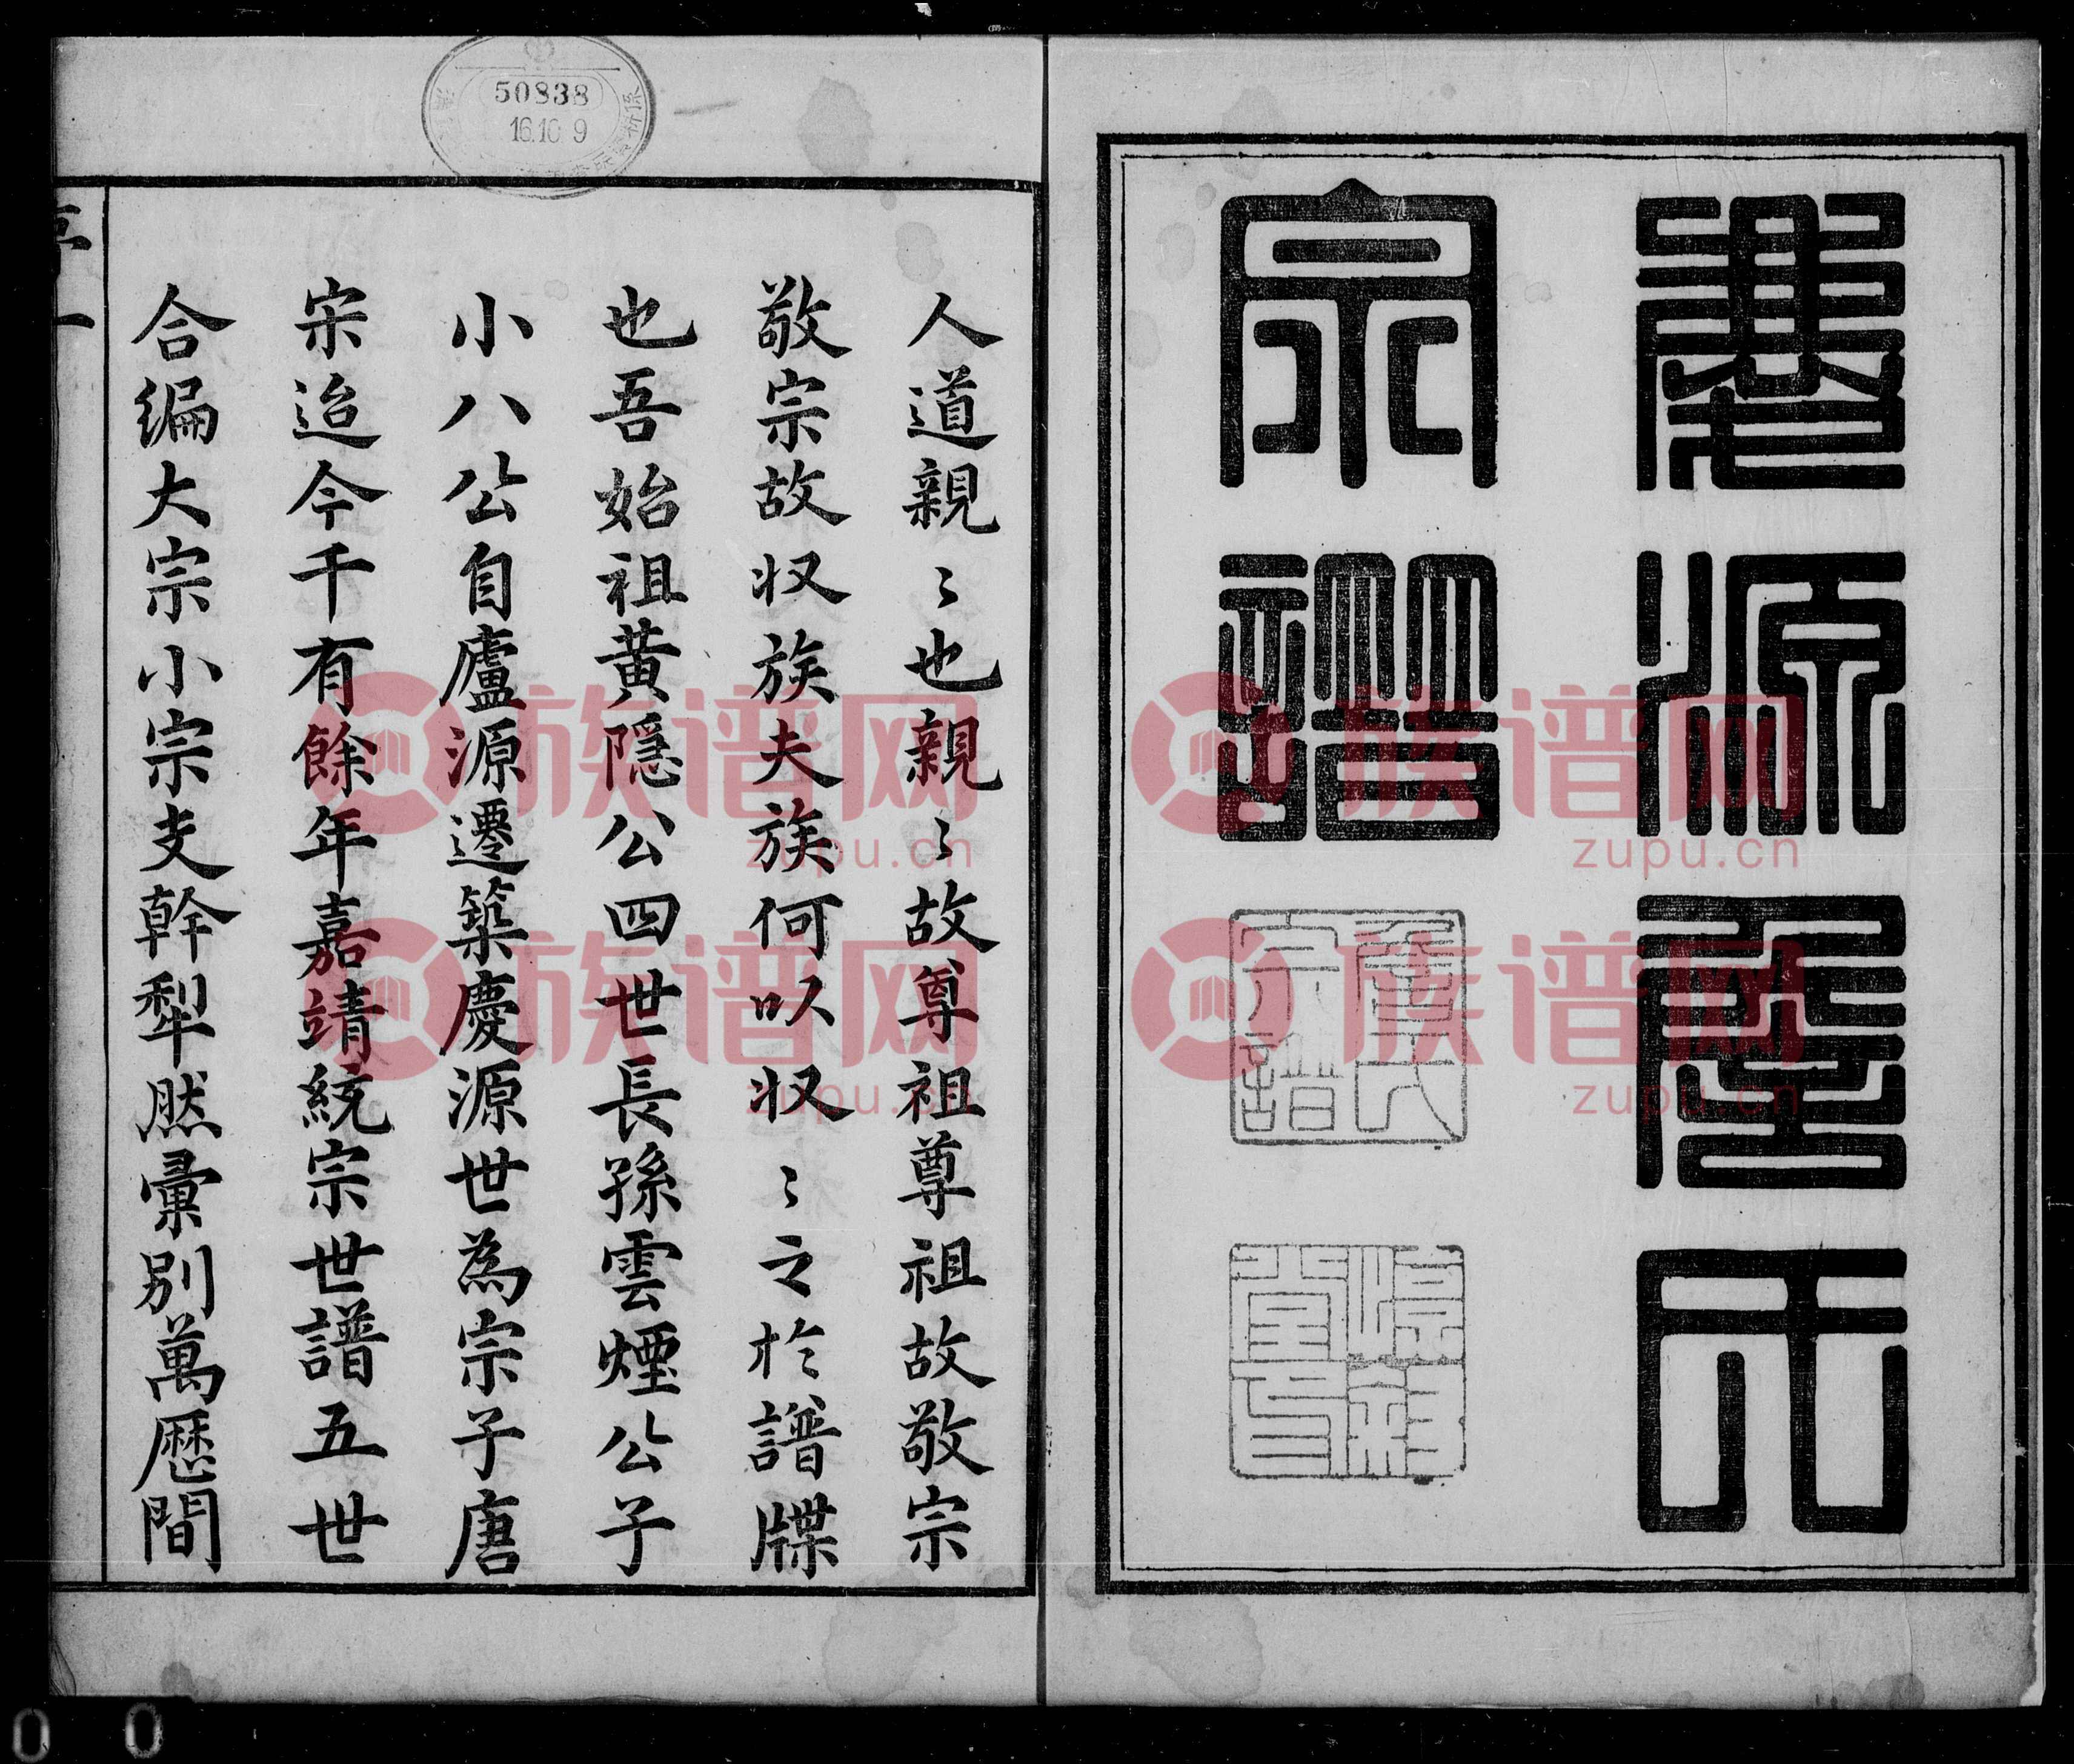 慶源詹氏
宗譜
詹氏
宗譜
人道親〻也親〻故尊祖尊祖故敬宗
敬宗故収族夫族何以収〻之於譜牒
也吾始祖黄隱公四世長孫雲煙公子
小八公自廬源遷築慶源世為宗子唐
宋迨今千有餘年嘉靖統宗世譜五世
合編大宗小宗支幹犁然彙別萬歷間
序一
50838
16.10 9
族谱网
zupu.cn
族谱网
zupu.cn
族谱网
zupu.cn
族谱网
zupu.cn
0 0